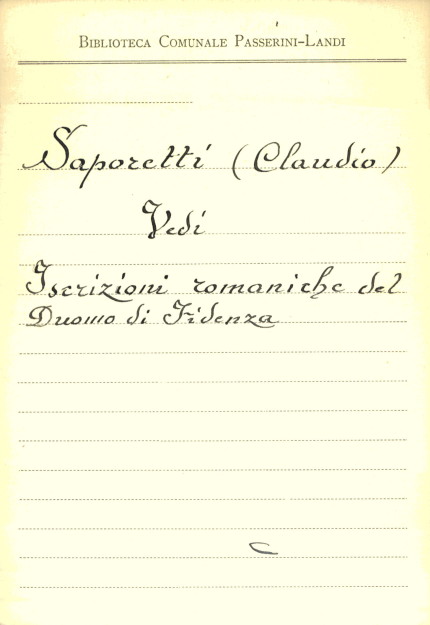 Biblioteca Comunale Passerini-Landi
Saporetti (Claudio)
Vedi
Iscrizioni romaniche del
Duomo di Fidenza